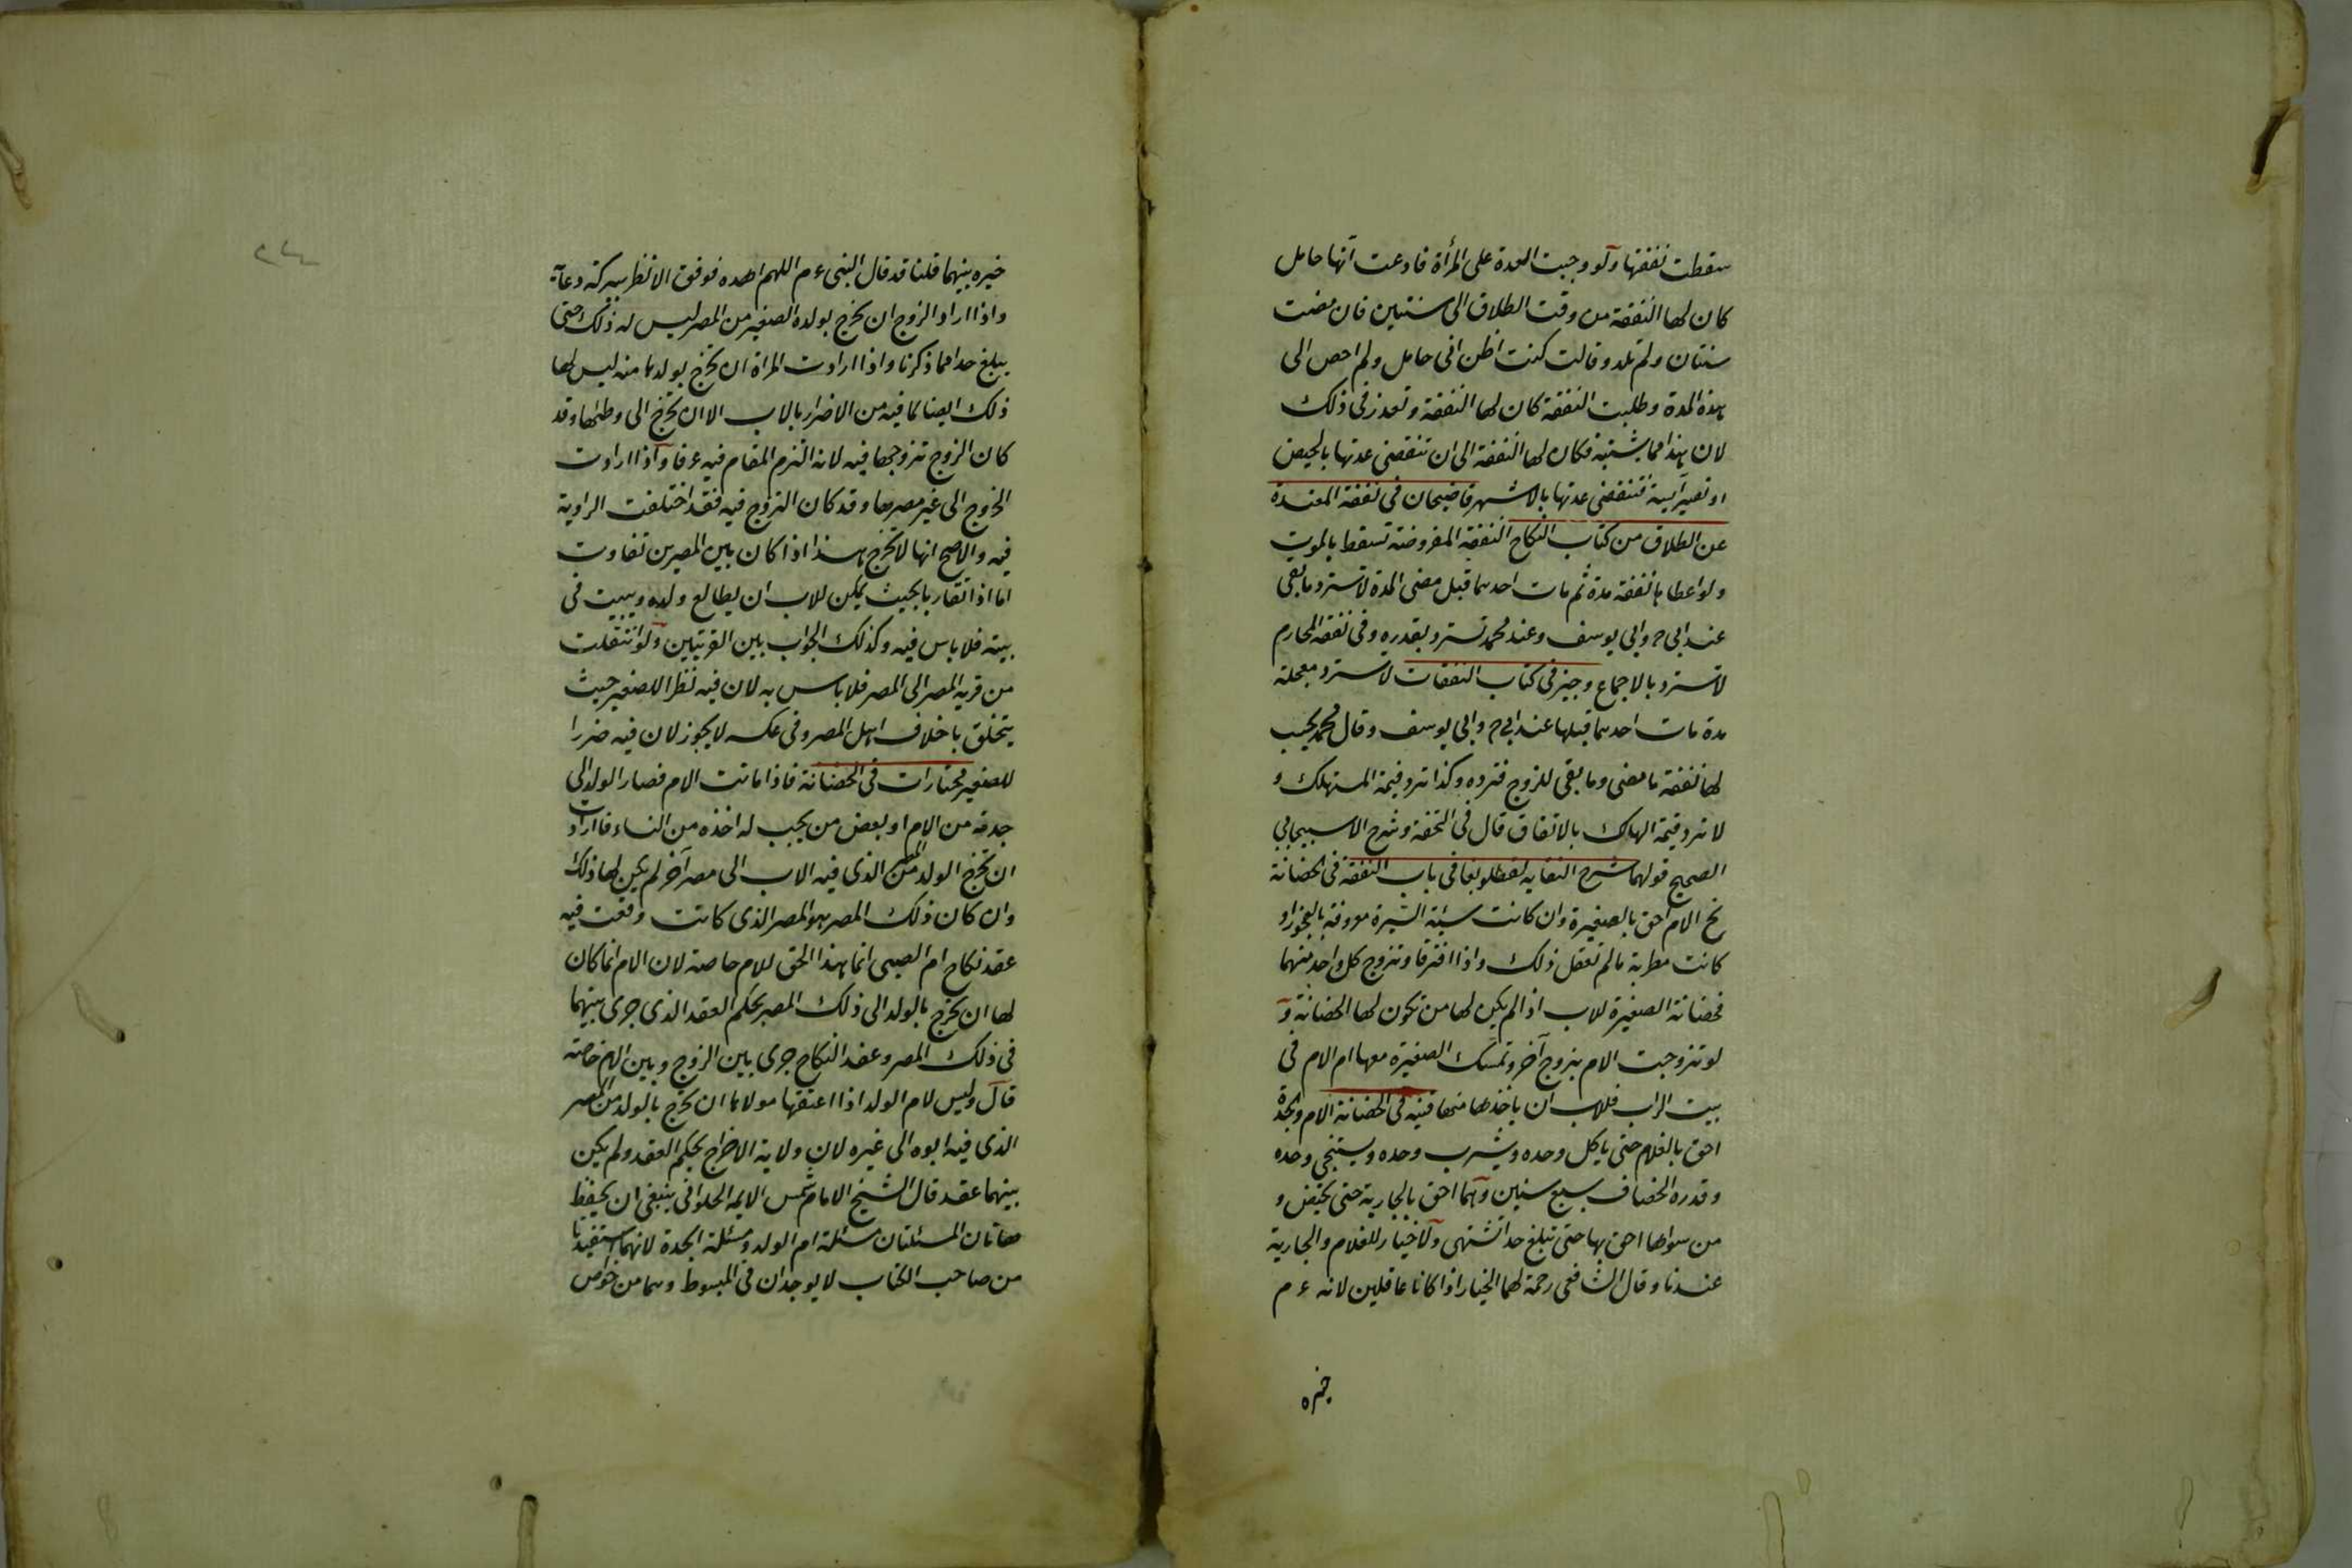 سقطت نفقتها ولو وجبت العدة على المرأة فادعت انها حامل
كان لها النفقة من وقت الطلاق الى سنتين فان مضت
سنتان ولم تلد وقالت كنت اظن انى حامل ولم احض الى
هذه المدة وطلبت النفقة كان لها النفقة وتعذر فى ذلك
لان هذا مما يشتبه فكان لها النفقة الى ان تنقضى عدتها بالحيض
او تصير آيسة فتنقضى عدتها بالاشهر قاضيخان فى نفقة المعتدة
عن الطلاق من كتاب النكاح النفقة المفروضة تسقط بالموت
ولو اعطاها نفقة مدة ثم مات احدهما قبل مضى المدة لا تسترد ما بقى
عند ابى ح وابى يوسف وعند محمد تسترد بقدره وفى نفقة المحارم
لا تسترد بالاجماع وجيز فى كتاب النفقات لا تسترد معجلة
مدة مات احدهما قبلها عند ابى ح وابى يوسف وقال محمد يجب
لها نفقة ما مضى وما بقى للزوج فترده وكذا ترد قيمة المستهلك و
لا ترد قيمة الهالك بالاتفاق قال فى التحفة وشرح الاسبيجابى
الصحيح قولهما شرح النقاية لقطلوبغا فى باب النفقة فى الحضانة
نخ الام احق بالصغيرة وان كانت سيئة السيرة معروفة بالفجور او
كانت مطربة ما لم تعقل ذلك واذا افترقا وتزوج كل واحد منهما
فحضانة الصغيرة للاب اذا لم يكن لها من تكون لها الحضانة و
لو تزوجت الام بزوج آخر وتمسك الصغيرة معها ام الام فى
بيت الراب فللاب ان ياخذها منها قنية فى الحضانة الام والجدة
احق بالغلام حتى ياكل وحده ويشرب وحده ويستنجى وحده
وقدره الخصاف بسبع سنين وهما احق بالجارية حتى تحيض و
من سواهما احق بها حتى تبلغ حدا تشتهى ولا خيار للغلام والجارية
عندنا وقال الشافعى رحمة لهما الخيار اذا كانا عاقلين لانه ع م
خيره
خيره بينهما قلنا قد قال النبى ع م اللهم اهده فوفق الانظر ببركة دعائه
واذا اراد الزوج ان يخرج بولده الصغير من المصر ليس له ذلك حتى
يبلغ حدا مما ذكرنا واذا ارادت المراة ان تخرج بولدها منه ليس لها
ذلك ايضا لما فيه من الاضرار بالاب الا ان تخرج الى وطنها وقد
كان الزوج تزوجها فيه لانه التزم المقام فيه عرفا واذا ارادت
الخروج الى غير مصرها وقد كان التزوج فيه فقد اختلفت الراوية
فيه والاصح انها لا تخرج هذا اذا كان بين المصرين تفاوت
اما اذا تقاربا بحيث يمكن للاب ان يطالع ولده ويبيت فى
بيته فلا باس فيه وكذلك الجواب بين القريتين ولو انتقلت
من قرية المصر الى المصر فلا باس به لان فيه نظرا للصغير حيث
يتخلق باخلاف اهل المصر وفى عكسه لا يجوز لان فيه ضررا
للصغير مختارات فى الحضانة فاذا ماتت الام فصار الولد الى
جدته من الام او بعض من يجب له اخذه من النساء فارادت
ان تخرج الولد من المصر الذى فيه الاب الى مصر آخر لم يكن لها ذلك
وان كان ذلك المصر هو المصر الذى كانت وقعت فيه
عقد نكاح ام الصبى انما هذا الحق للام خاصة لان الام انما كان
لها ان تخرج بالولد الى ذلك المصر بحكم العقد الذى جرى بينهما
فى ذلك المصر وعقد النكاح جرى بين الزوج وبين الام خاصة
قال وليس لام الولد اذا اعتقها مولاها ان تخرج بالولد من المصر
الذى فيه ابوه الى غيره لان ولاية الاخراج بحكم العقد ولم يكن
بينهما عقد قال الشيخ الامام شمس الايمة الحلوانى ينبغى ان يحفظ
هاتان المسئلتان مسئلة ام الولد ومسئلة الجدة لانهما استفيدتا
من صاحب الكتاب لا يوجدان فى المبسوط وهما من خواص